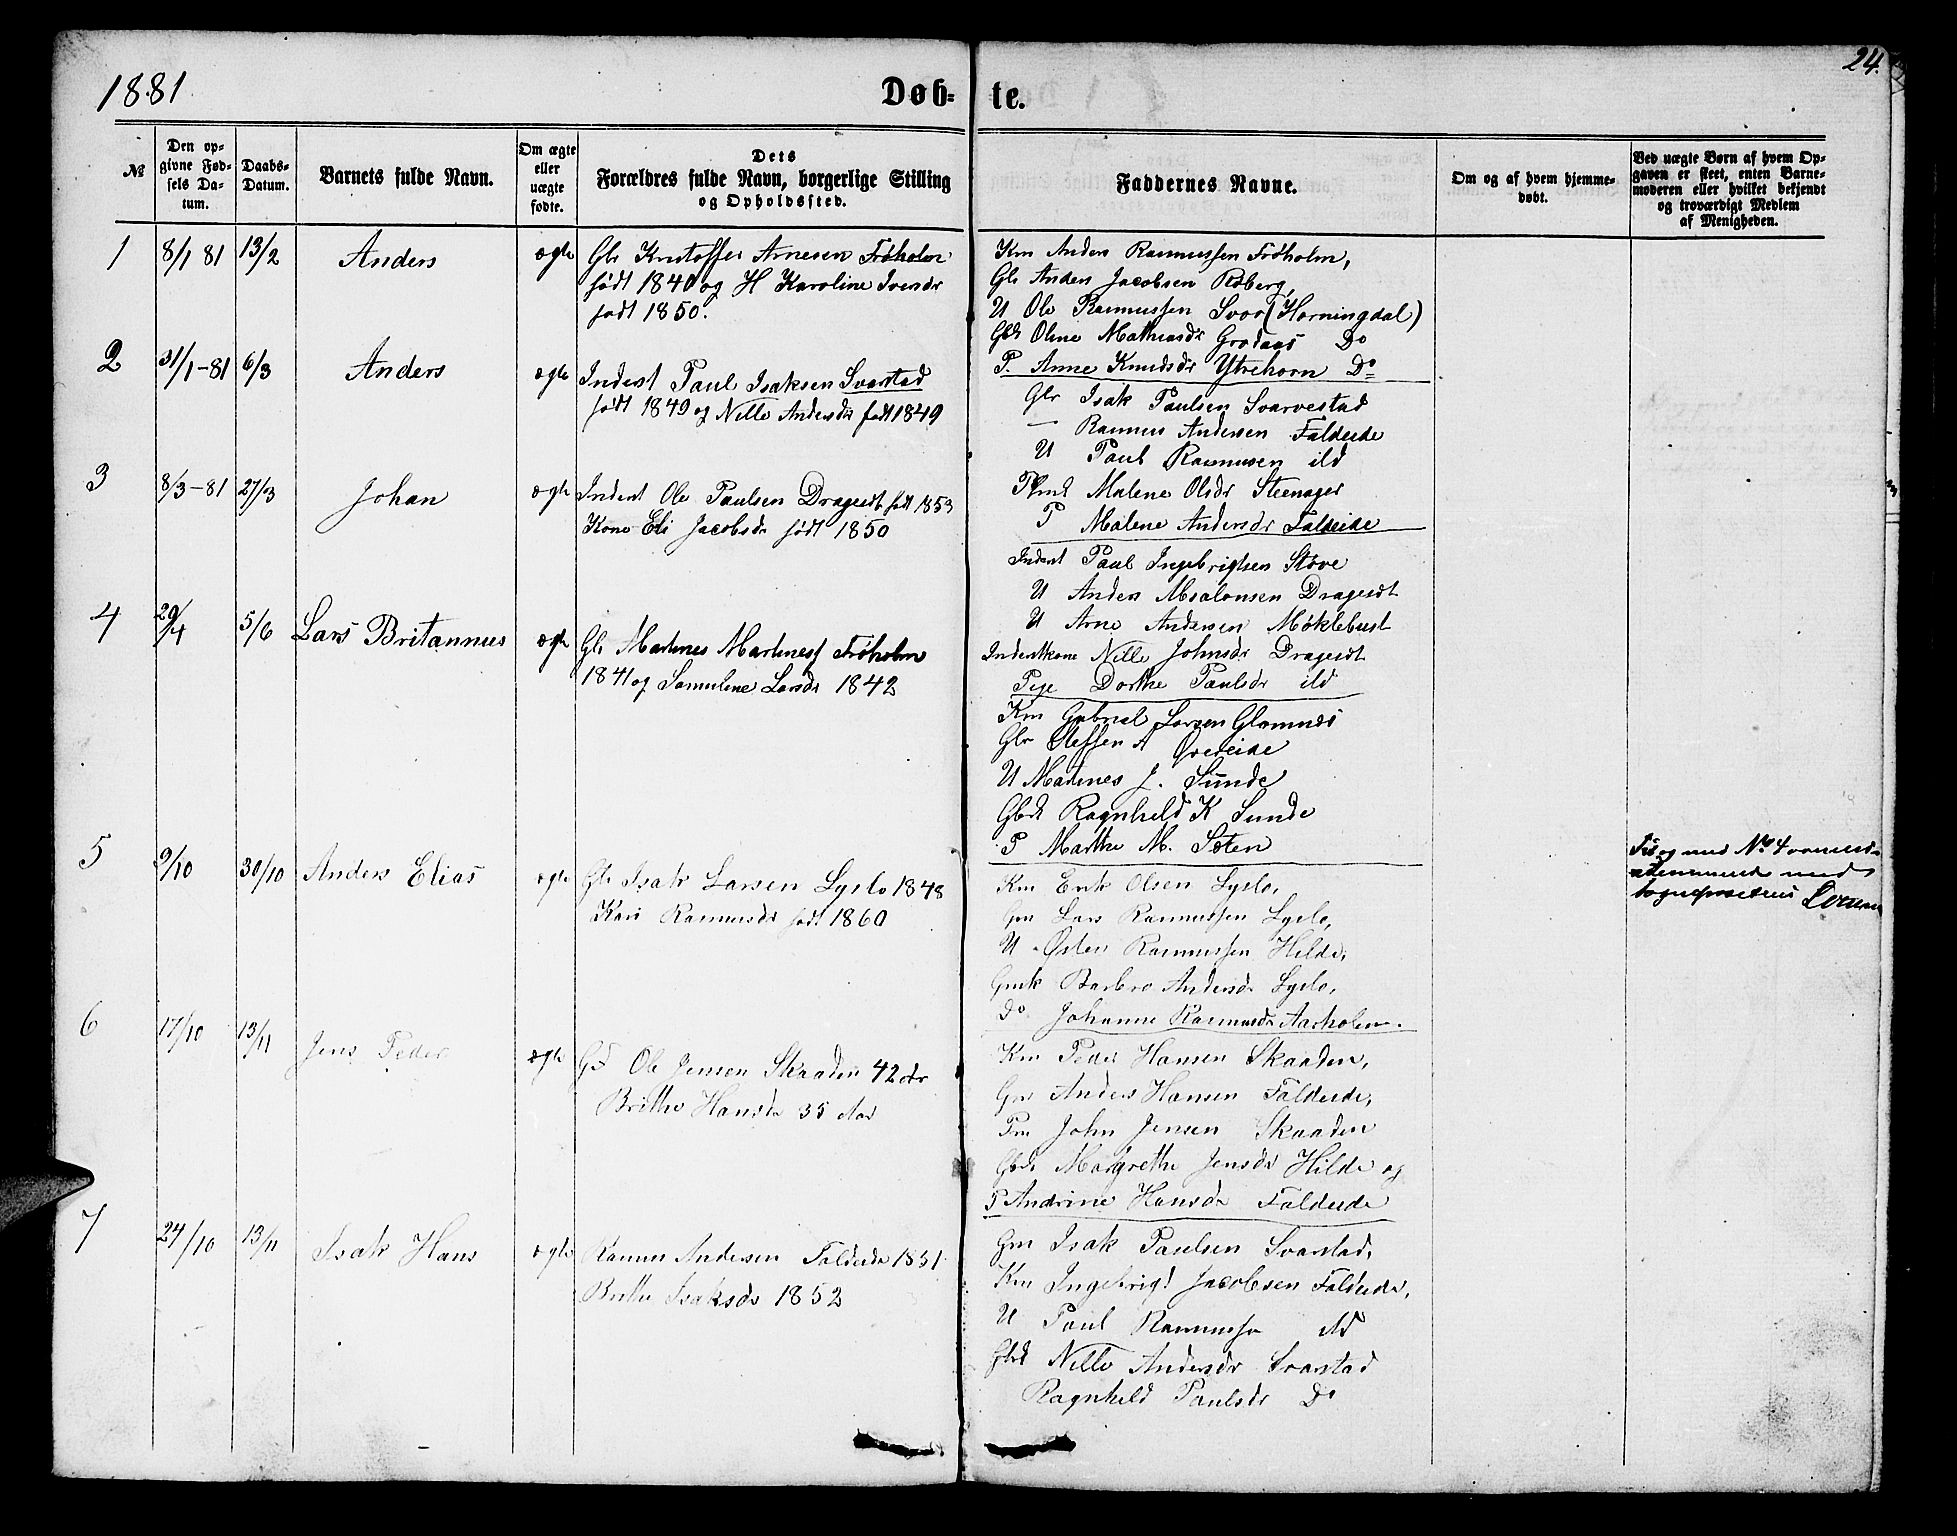 1881
Døb-
te.
24.
№
Den op-
givne Fød-
sels Da-
tum.
Daabs-
Datum.
Barnets fulde Navn.
Om ægte
eller
uægte
fødte.
Dets
Forældres fulde Navn, borgerlige Stilling
og Opholdssted.
Faddernes Navne.
Om og af hvem hjemme-
døbt.
Ved uægte Børn af hvem Op-
gaven er skeet, enten Barne-
moderen eller hvilket bekjendt
og troværdigt Medlem
af Menigheden.
1
8/1 81
13/2
Anders
ægte
Gbr Kristoffer Arnesen Frøholm
født 1840 og H Karoline Iversdr
født 1850.
Km Anders Rasmussen Frøholm,
Gbr Anders Jacobsen Roberg,
U Ole Rasmussen Svor (Horningdal)
Gbd Oline Mathiasdr Grodaas Do
P. Anne Knudsdr Ytrehorn Do
2
31/1-81
6/3
Anders
ægte
Inderst Paul Isaksen Svarstad
født 1849 og Nille Andersdr født 1849
Gbr Isak Paulsen Svarvestad
— Rasmus Andersen Faldeide
U Paul Rasmusen ild
Malene Olsdr Steenager
P Malene Andersdr Faldeide
3
8/3-81
27/3
Johan
ægte
Inderst Ole Paulsen Drageidt født 1853
Kone Eli Jacobsdr født 1850
Inderst Paul Ingebrigtsen Støve
U Anders Absalonsen Drageidt
U Arne Andersen Møklebust
Inderstkone Nille Johnsdr Drageidt
Pige Dorthe Paulsdr ild
4
29/4
5/6
Lars Britannus
ægte
Gbr Martines Martines Frøholm
1841 og Samuline Larsdr 1842
Km Gabriel Larsen Glomnes
Gbr Steffen A Øvreeide
U Martines J. Sunde
Gbd Ragnhild K Sunde
P Marthe M. Sæten
5
9/10
30/10
Anders Elias
ægte
Gbr Isak Larsen Lyslo 1848
Kari Rasmusdr født 1860
Km Erik Olsen Lyslo,
Gm Lars Rasmussen Lyslo,
U Østen Rasmussen Hilde,
Gmk Barbro Andersdr Lyslo,
Do Johanne Rasmusdr Aarholen.
og med No 4
med
sognepræstens
6
17/10
13/11
Jens Peder
ægte
Ole Jensen Skaaden 42 Aar
Brithe Hansdr 35 Aar
Km Peder Hansen Skaaden,
Gm Anders Hansen Faldeide,
Pm John Jensen Skaaden
Gbd Margrethe Jensdr Hilde og
P Andrine Hansdr Faldeide
7
24/10
13/11
Isak Hans
ægte
Rasmus Andersen Faldeide 1851
Brithe Isaksdr 1852
Gm Isak Paulsen Svarstad,
Km Ingebrigt Jacobsen Faldeide,
U Paul Rasmussen ild
Gbd Nille Andersdr Svarstad
Ragnhild Paulsdr Do